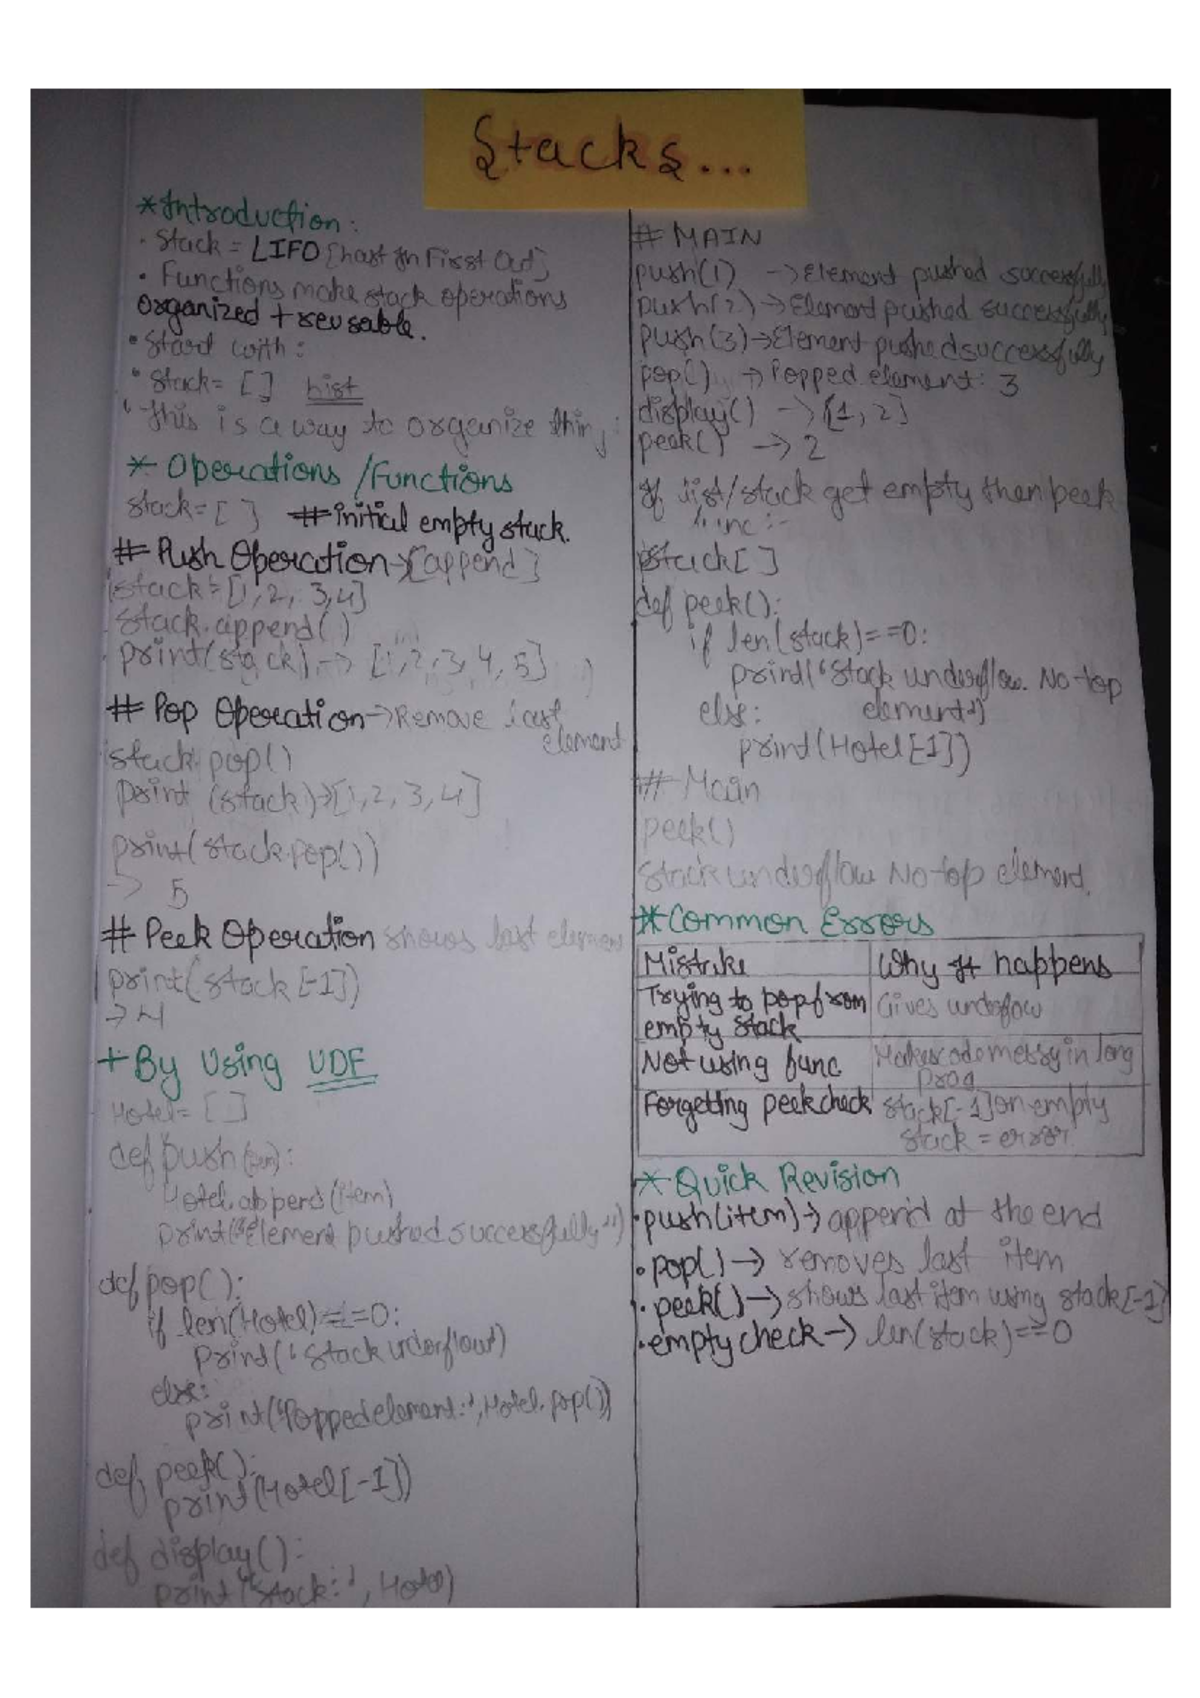 Stacks...
*Introduction:
· Stack = LIFO [Last In First Out]
· Functions make stack operations
organized + reusable.
• Start with:
• Stack= [ ] List
• This is a way to organize thing
* Operations /Functions
stack= [ ] # initial empty stack.
# Push Operation→[append]
stack= [1, 2, 3, 4]
stack.append( )
print(stack) → [1, 2, 3, 4, 5]
# Pop Operation→Remove last
element
stack.pop()
print (stack)→[1, 2, 3, 4]
print(stack.pop())
→ 5
# Peek Operation shows last element
print(stack[-1])
→ 4
+ By Using UDF
Hotel= [ ]
def push(item):
Hotel.append(item)
print("Element pushed successfully")
def pop():
if len(Hotel)==0:
print('Stack underflow')
else:
print("Popped element:', Hotel.pop())
def peek():
print(Hotel[-1])
def display():
print("Stack:', Hotel)
# MAIN
push(1) →Element pushed successfully
push(2)→Element pushed successfully
push(3)→Element pushed successfully
pop() → Popped element: 3
display() → [1, 2]
peek() → 2
If list/stack get empty then peek
func:-
stack[ ]
def peek():
if len(stack)==0:
print("Stack underflow. No top
element")
else:
print(Hotel[-1])
# Main
peek()
Stack underflow No top element.
*Common Errors
Mistake Why It happens
Trying to pop from empty stack Gives underflow
Not using func Makes code messy in long prog
Forgetting peek check stack[-1] on empty stack = error
* Quick Revision
• push(item)→ append at the end
• pop() → removes last item
• peek()→ shows last item using stack[-1]
• empty check → len(stack)==0